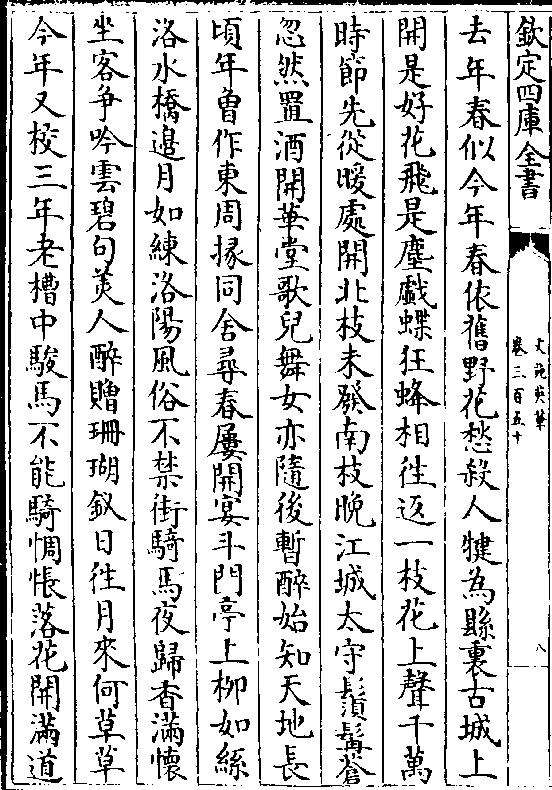 欽定四庫全書
文苑英華
卷三百五十
八
去年春似今年春依舊野花愁殺人犍為縣裏古城上
開是好花飛是塵戲蝶狂蜂相往返一枝花上聲千萬
時節先從暖處開北枝未發南枝晚江城太守鬚髯蒼
忽然置酒開華堂歌兒舞女亦隨後暫醉始知天地長
頃年曾作東周掾同舍尋春屢開宴斗門亭上柳如絲
洛水橋邉月如練洛陽風俗不禁街騎馬夜歸香滿懷
坐客争吟雲碧句美人醉贈珊瑚釵日往月來何草草
今年又校三年老槽中駿馬不能騎惆悵落花開滿道